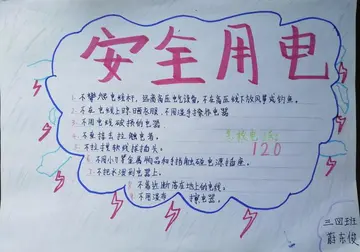 安全用电
1.不攀爬电线杆,远离高压电气设备,不在高压线下放风筝或钓鱼。
2.不在电线上晾晒衣服,不用湿手操作电器
3.不用电线破损的电器
4.不直接去拉触电者。
急救电话:
120
5.不拉拽软线拔插头。
6.不用小刀等金属物品和手指触碰电源插座。
7.不把水洒到电器上。
8.不靠近断落在地上的电线。
9.不用湿布擦电器。
三四班